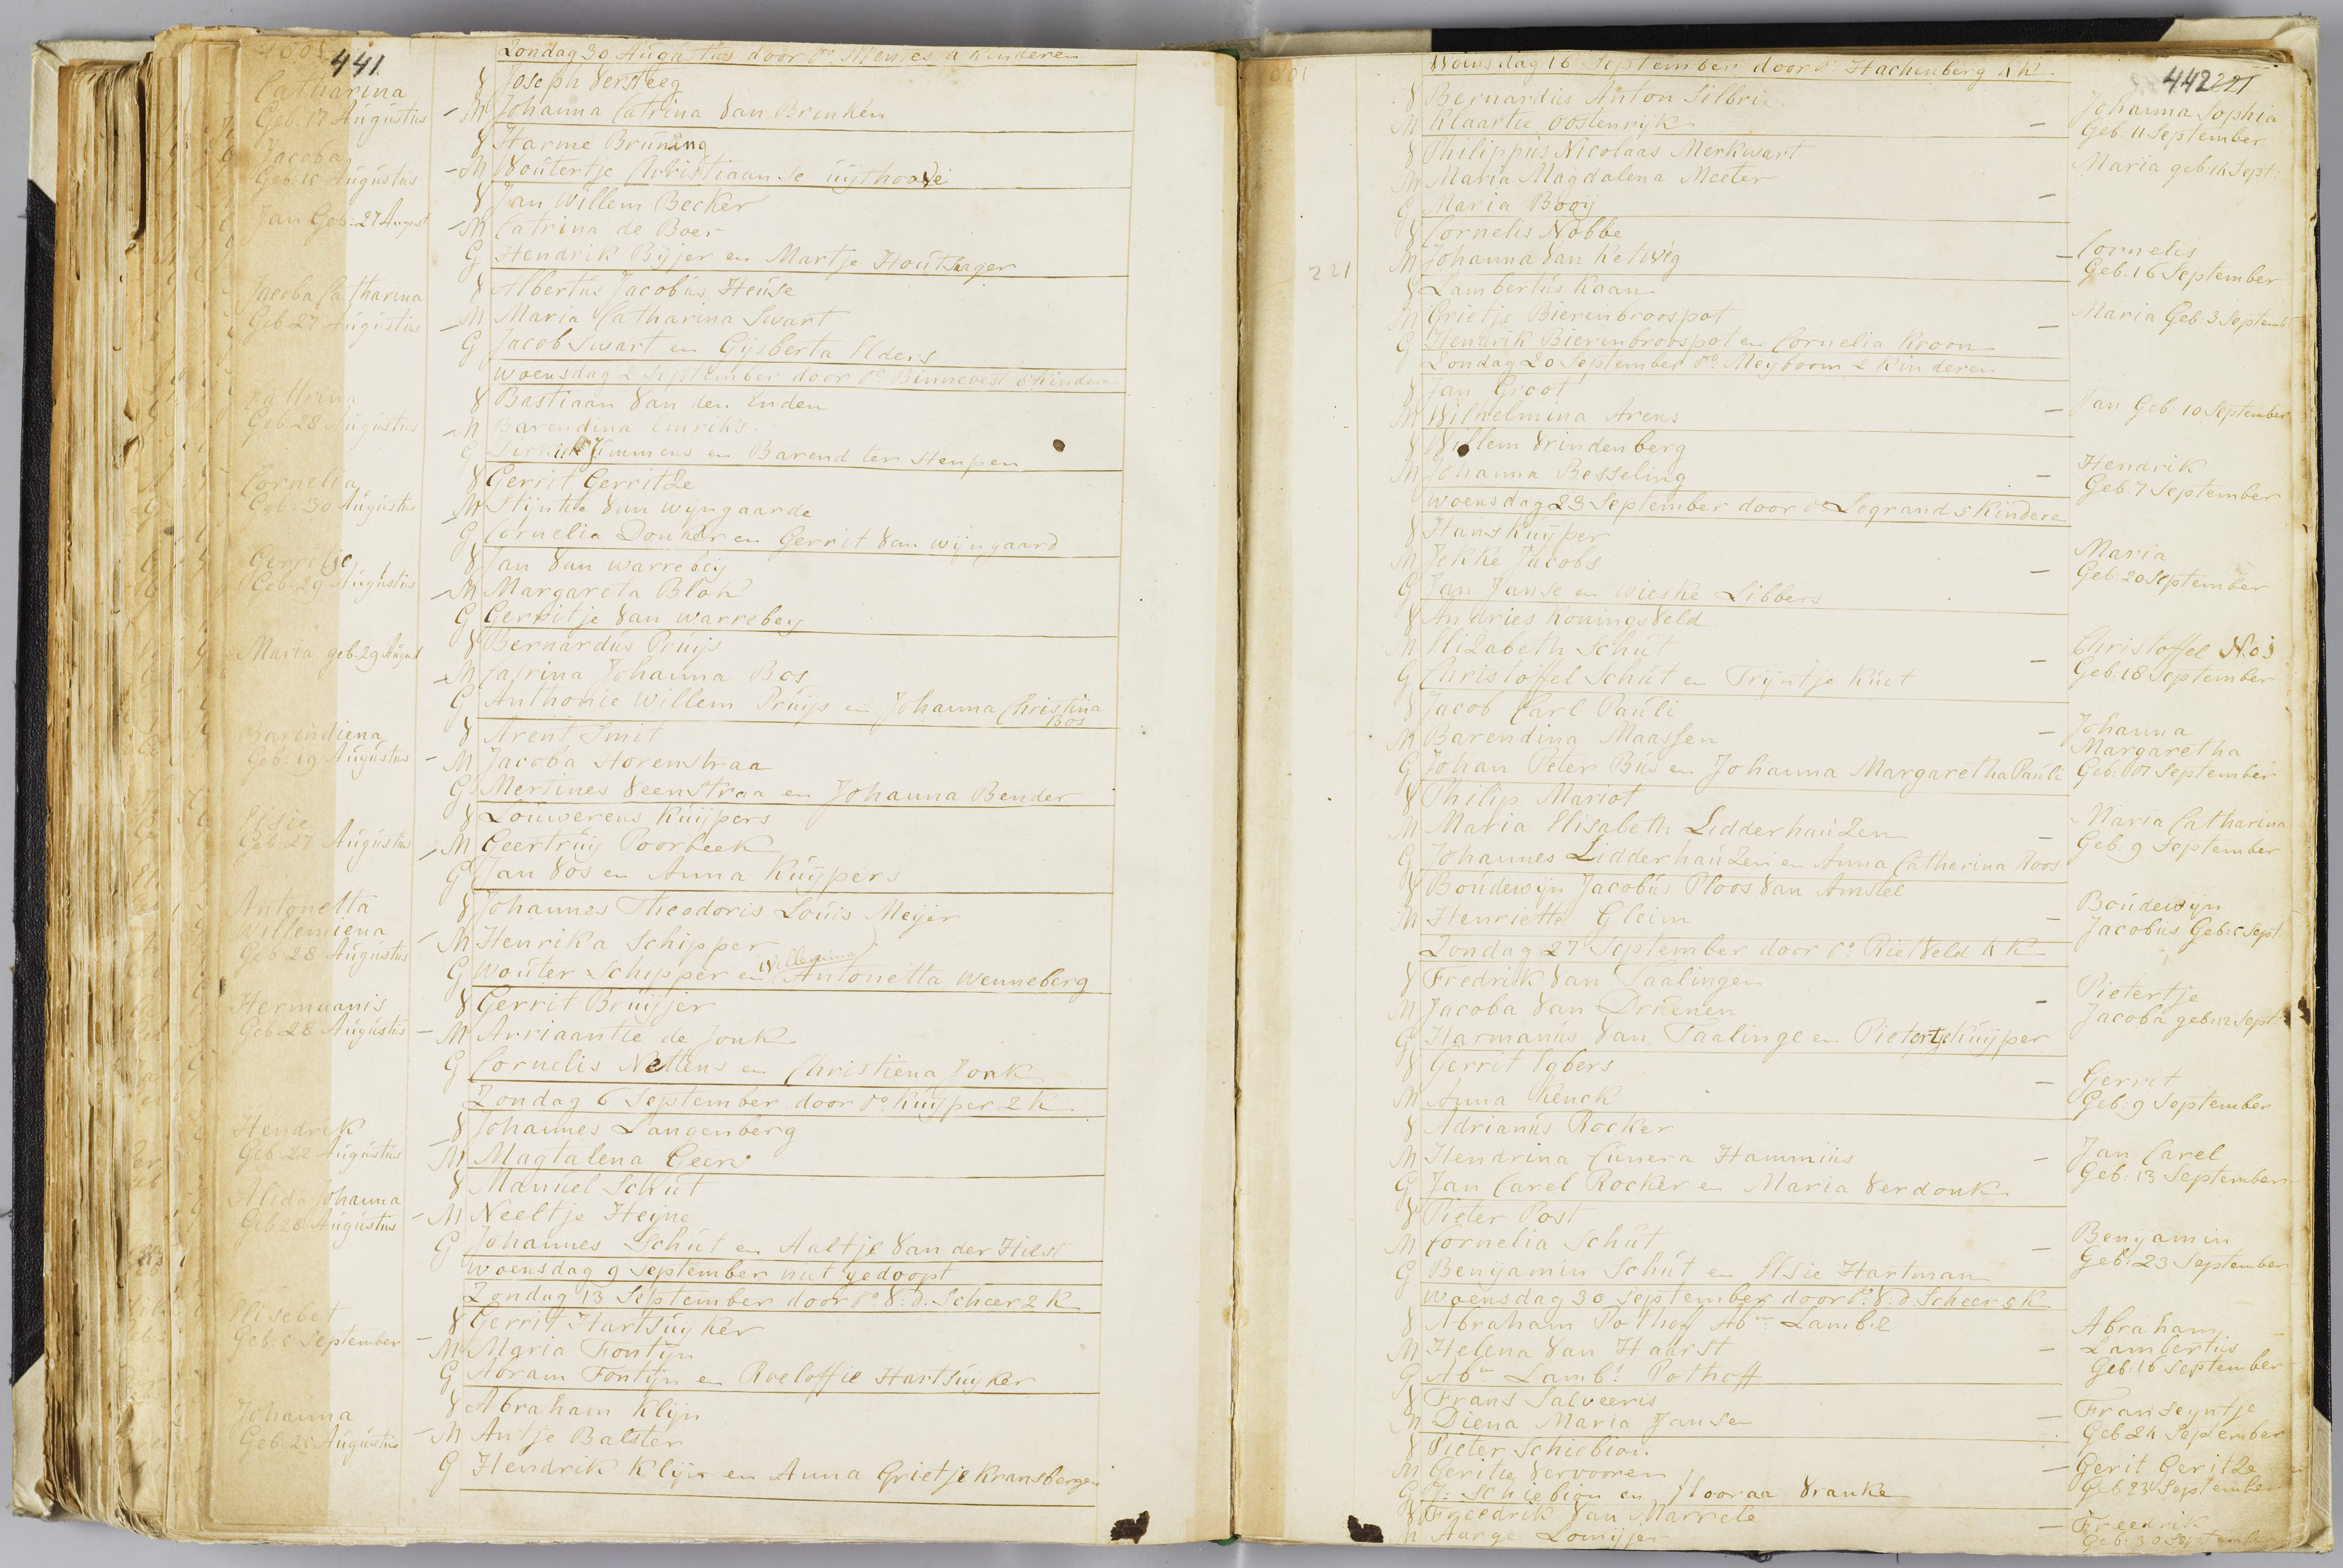 441
Zondag 30 Augustus door Do. Mentes 4 kinderen
Catharina
V Joseph Versteeg
Geb. 17 Augustus - M Johanna Catrina Van Brinken
V Harme Bruning
Jacoba
Geb. Augustus - M Woutertje Christiaanse
V Jan Willem Becker
Jan Geb: 27 August - M Catrina de Boer
G Hendrik Bijjer en Martje Houthager
Jacoba Catharina V Albertus Jacobus Heuse
Geb 27 Augustus - M Maria Catharina Swart
G Jacob Swart en Gijsberta Elders
woensdag 2 September door Do. Binnevest 8 kindere
Cattrina V Bastiaan Van den Enden
Geb 28 Augustus - M Barendina Emriks
G Timmens en Barend ter Steupen
Cornelia V Gerrit Gerritze
Geb. 30 Augustus - M Stijntie Van Wijngaarde
G Cornelia Donker en Gerrit Van Wijngaard
Gerritje V Jan Van Warrebeij
Geb: 29 Augustus - M Margareta Blok
G Gerritje Van Warrebeij
Maria geb. 29 August V Bernardus Pruijs
- M Catrina Johanna Bos
G Anthonie Willem Pruijs en Johanna Christina
Bos
Barendiena V Arent Smit
Geb. 19 Augustus - M Jacoba Storenstraa
G Mertines Veenstraa en Johanna Bender
Elsie V Louwerens Kuijpers
Geb 27 Augustus - M Geertruij Poorbeek
G Jan Vos en Anna Kuijpers
Antonetta V Johannes Theodoris Louis Meijer
Willemiena - M Henrika Schipper
Geb 28 Augustus Willemina
G Wouter Schipper en Antonetta Wenneberg
Hermanis V Gerrit Bruijjer
Geb 28 Augustus - M Arriaantie de Jonk
G Cornelis Nettens en Christiena Jonk
Zondag 6 September door Do. Kuijper 2 K
Hendrik V Johannes Langenberg
Geb 22 Augustus - M Magtalena Geers
Alida Johanna V Manuel Schut
Geb 28 Augustus - M Neeltje Heijne
G Johannes Schut en Aaltje Van der Hilst
Woensdag 9 September niet gedoopt
Zondag 13 September door Do. V: D. Scheer 2 K
Elisebet V Gerrit Hartsuyker
Geb. September - M Maria Fontijn
G Abram Fontijn en Roeloffie Hartsuyker
Johanna V Abraham Klijn
Geb. Augustus - M Antje Balster
G Hendrik Klijn en Anna Grietje Kransbergen
442 221
Woensdag 16 September door Do. Hachenberg 4 K
V Bernardus Anton Silbri
Johanna Sophia
M Klaartie Oostenrijk - Geb. 11 September
V Philippus Nicolaas Merkwart
M Maria Magdalena Meeter
Maria geb. 14 Sept:
G Maria Booij -
V Cornelis Nobbe
M Johanna Van Ketwig - Cornelis
Geb: 16 September
221
V Lambertus Kaan
M Grietje Bierenbroospot - Maria Geb: 3 Septemb
G Hendrik Bierenbroospot en Cornelia Kroon
Zondag 20 September Do. Meyboom 2 Kinderen
V Jan Groot
M Wilhelmina Arens - Jan Geb. 10 September
V Willem Vrindenberg
M Johanna Besseling - Hendrik
Geb. 7 September
Woensdag 23 September door Do Legrand 5 Kindere
V Hans Kuyper
M Jekke Jacobs - Maria
Geb: 20 September
G Jan Janse en Wieske Libbers
V Andries Koningsveld
M Elizabeth Schut - Christoffel
G Christoffel Schut en Trijntje Kuet Geb. 18 September
V Jacob Carl Pauli
M Barendina Maassen - Johanna
Margaretha
G Johan Peter Bus en Johanna Margaretha Pauli Geb. September
V Philip Mariot
M Maria Elisabeth Lidderhauzen - Maria Catharina
Geb. 9 September
G Johannes Lidderhauzen en Anna Catharina Roos
V Boudewijn Jacobus Ploos Van Amstel
M Henriette Gleim - Boudewijn
Jacobus Geb: Sept:
Zondag 27 September door Do. Rietveld 4 K
V Fredrik Van Taalingen
M Jacoba Van Drunen - Pietertje
Jacoba geb. 12 Sept:
G Harmanus Van Taalinge en Pietertje Kuijper
V Gerrit Egbers
M Anna Kenck - Gerrit
Geb. 9 September
V Adrianus Rocker
M Hendrina Cunera Hammius - Jan Carel
Geb: 13 September
G Jan Carel Rocker en Maria Verdonk
V Pieter Post
M Cornelia Schut - Benyamin
Geb: 23 September
G Benyamin Schut en Elsie Hartman
Woensdag 30 September door Do. V: D. Scheer 5 K
V Abraham Pothof Abm Lamb.z
M Helena Van Haarst - Abraham
Lambertus
G Abm Lamb: Pothoff Geb. 16 September
V Frans Salveeris
M Diena Maria Jansen - Franseyntje
Geb 24 September
V Pieter Schiebion
M Geritie Vervooren - Gerit Geritze
G J: Schiebion en Flooraa Vranke Geb 23 September
V Freedrik Van Marrele
M Aarge Lomijjer - Freedrik
Geb: 30 September